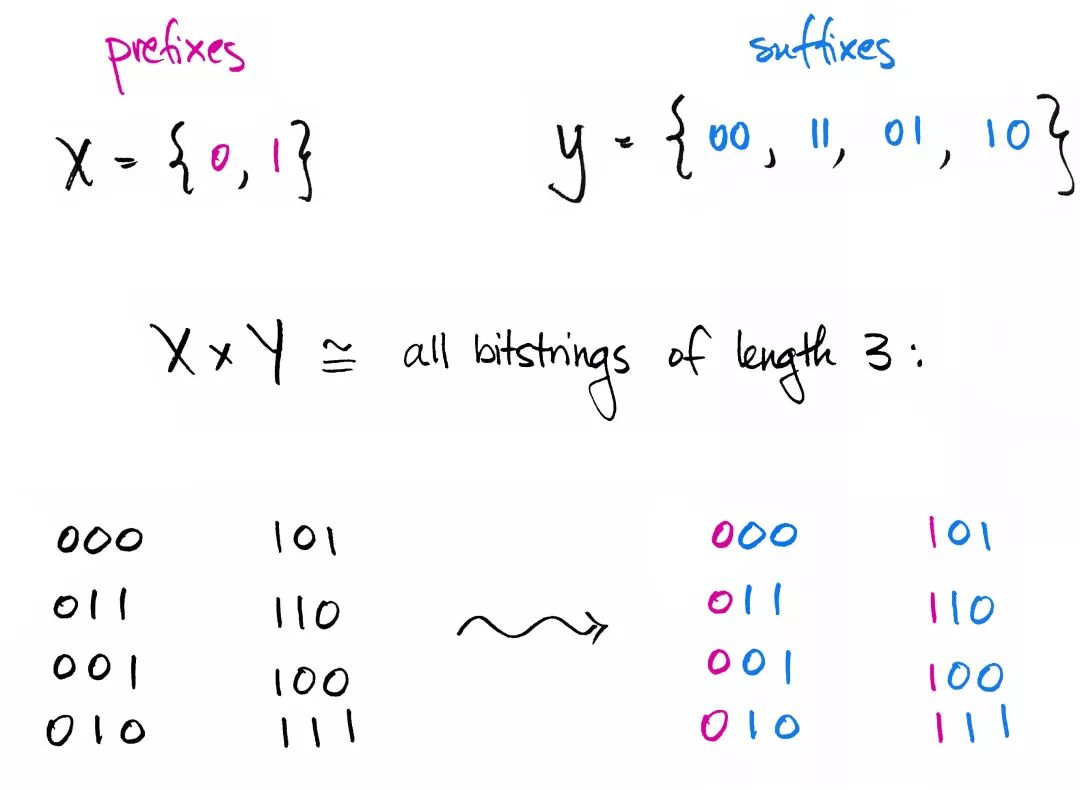 prefixes suffixes
X = {0, 1} Y = {00, 11, 01, 10}
X × Y ≅ all bitstrings of length 3:
000 101 000 101
011 110 011 110
001 100 001 100
010 111 010 111